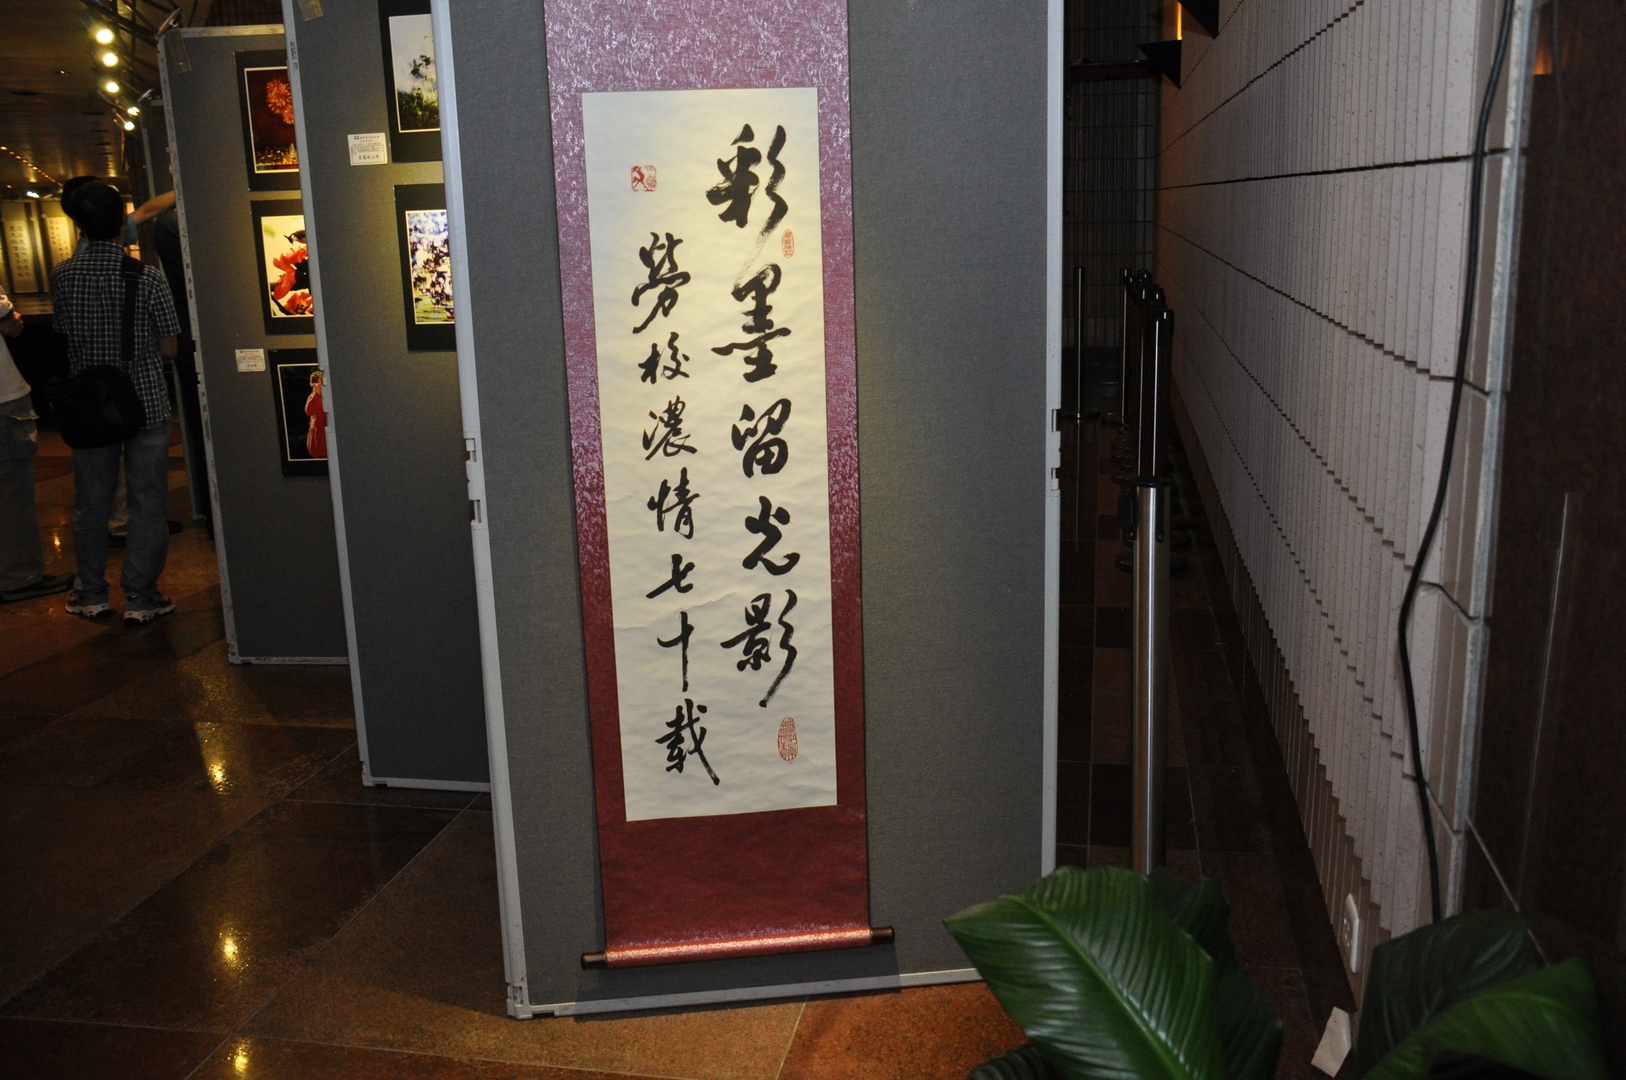 彩墨留光影
勞校濃情七十載